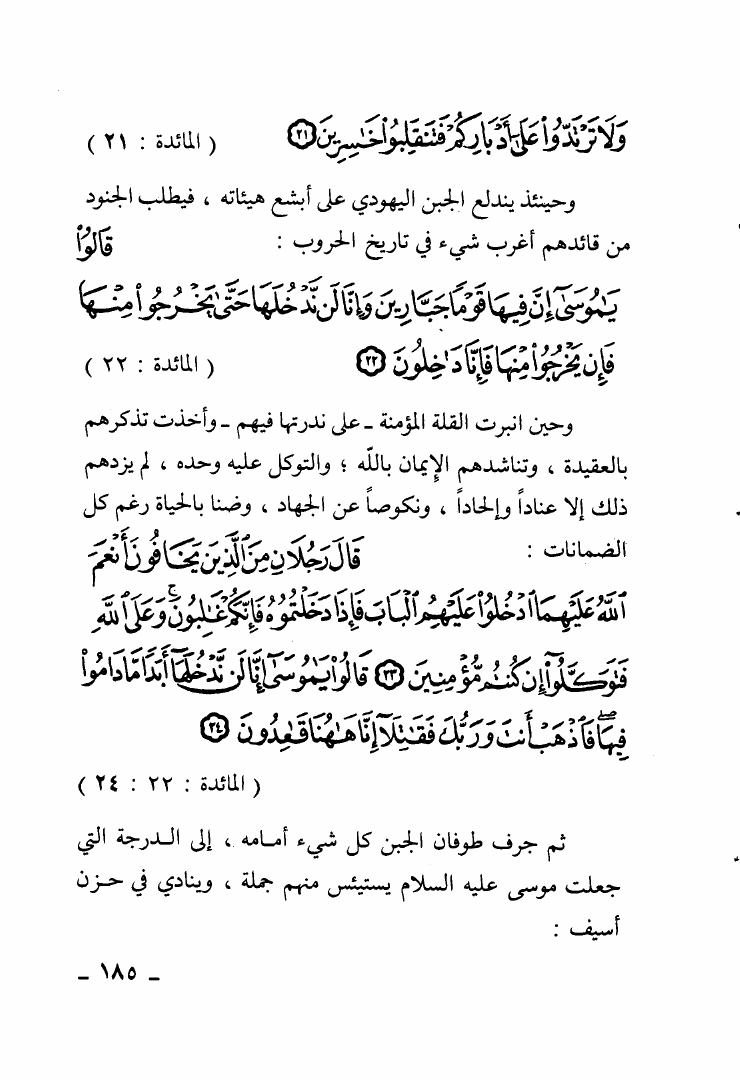 وَلَا تَرْتَدُّوا۟ عَلَىٰٓ أَدْبَارِكُمْ فَتَنقَلِبُوا۟ خَـٰسِرِينَ ٢١ ( المائدة : ٢١ )
وحينئذ يندلع الجبن اليهودي على أبشع هيئاته ، فيطلب الجنود
من قائدهم أغرب شيء في تاريخ الحروب : قَالُوا۟
يَـٰمُوسَىٰٓ إِنَّ فِيهَا قَوْمًا جَبَّارِينَ وَإِنَّا لَن نَّدْخُلَهَا حَتَّىٰ يَخْرُجُوا۟ مِنْهَا
فَإِن يَخْرُجُوا۟ مِنْهَا فَإِنَّا دَٰخِلُونَ ٢٢ ( المائدة : ٢٢ )
وحين انبرت القلة المؤمنة ـ على ندرتها فيهم ـ وأخذت تذكرهم
بالعقيدة ، وتناشدهم الإيمان بالله ؛ والتوكل عليه وحده ، لم يزدهم
ذلك إلا عناداً وإلحاداً ، ونكوصاً عن الجهاد ، وضنا بالحياة رغم كل
الضمانات : قَالَ رَجُلَانِ مِنَ ٱلَّذِينَ يَخَافُونَ أَنْعَمَ
ٱللَّهُ عَلَيْهِمَا ٱدْخُلُوا۟ عَلَيْهِمُ ٱلْبَابَ فَإِذَا دَخَلْتُمُوهُ فَإِنَّكُمْ غَـٰلِبُونَ ۚ وَعَلَى ٱللَّهِ
فَتَوَكَّلُوٓا۟ إِن كُنتُم مُّؤْمِنِينَ ٢٣ قَالُوا۟ يَـٰمُوسَىٰٓ إِنَّا لَن نَّدْخُلَهَآ أَبَدًا مَّا دَامُوا۟
فِيهَا ۖ فَٱذْهَبْ أَنتَ وَرَبُّكَ فَقَـٰتِلَآ إِنَّا هَـٰهُنَا قَـٰعِدُونَ ٢٤
( المائدة : ٢٢ : ٢٤ )
ثم جرف طوفان الجبن كل شيء أمامه ، إلى الدرجة التي
جعلت موسى عليه السلام يستيئس منهم جملة ، وينادي في حزن
أسيف :
ـ ١٨٥ ـ